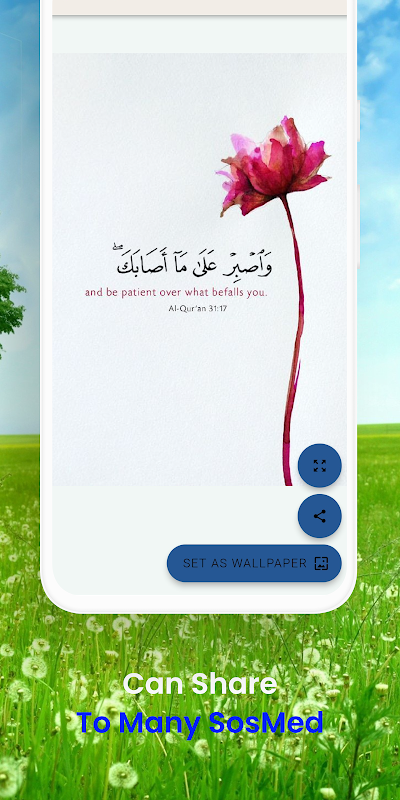 وَٱصْبِرْ عَلَىٰ مَآ أَصَابَكَ ۖ
and be patient over what befalls you.
Al-Qur'an 31:17
SET AS WALLPAPER
Can Share
To Many SosMed